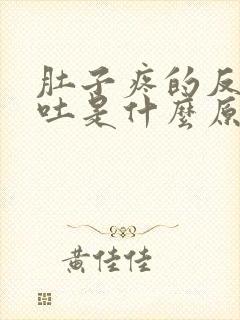 肚子疼的反
吐是什麼原
黄佳佳